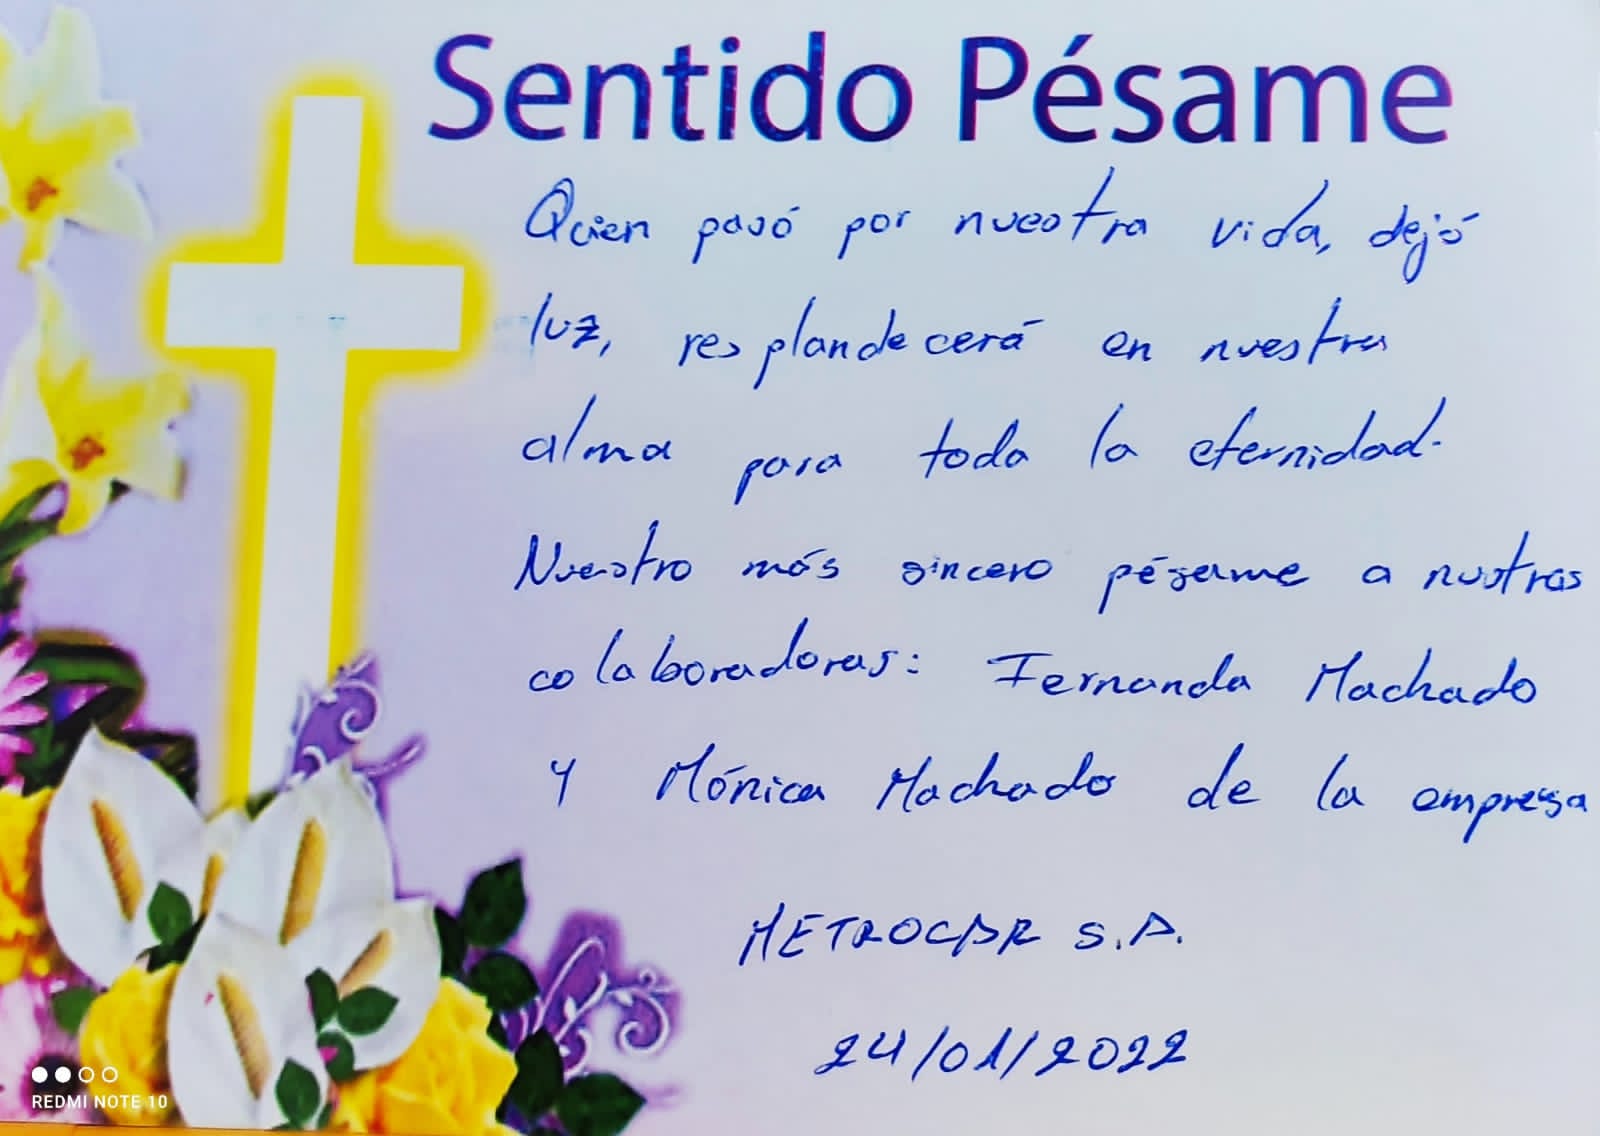 Sentido Pésame
Quien pasó por nuestra vida, dejó
luz, resplandecerá en nuestra
alma para toda la eternidad.
Nuestro más sincero pésame a nuestras
colaboradoras: Fernanda Machado
Y Mónica Machado de la empresa
METROCAR S.A.
24/01/2022
REDMI NOTE 10